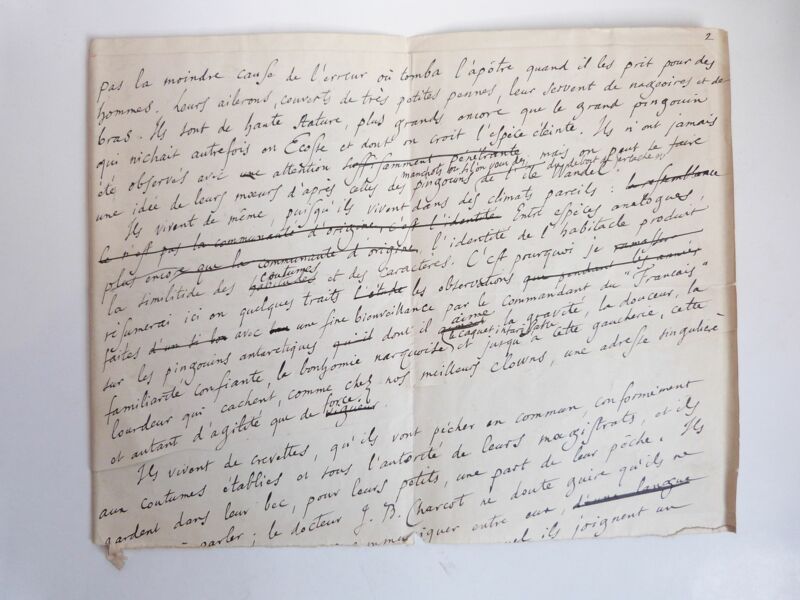 2
pas la moindre cause de l'erreur où tomba l'apôtre quand il les prit pour des
hommes. Leurs ailerons, couverts de très petites pennes, leur servent de nageoires et de
bras. Ils sont de haute stature, plus grands encore que le grand pingouin
qui nichait autrefois en Ecosse et dont on croit l'espèce éteinte. Ils n'ont jamais
été observés avec une attention suffisamment pénétrante mais on peut se faire
une idée de leurs mœurs d'après celles des pingouins de l'île Wandel.
manchots ou si l'on veut des
Ils vivent de même, puisqu'ils vivent dans des climats pareils : la ressemblance
ce n'est pas la communauté d'origine, c'est l'identité Entre espèces analogues,
plus encore que la communauté d'origine, l'identité de l'habitacle produit
la similitude des coutumes habitudes et des caractères. C'est pourquoi je
résumerai ici en quelques traits les observations que pendant les années
faites d'un si bon avec une fine bienveillance par le commandant du "Français"
sur les pingouins antarctiques qu'il dont il aime la gravité, la douceur, la
familiarité confiante, la bonhomie narquoise le caquet intarissable et jusqu'à cette gaucherie, cette
lourdeur qui cachent, comme chez nos meilleurs clowns, une adresse singulière
et autant d'agilité que de force. vigueur.
Ils vivent de crevettes, qu'ils vont pêcher en commun, conformément
aux coutumes établies et sous l'autorité de leurs magistrats, et ils
gardent dans leur bec, pour leurs petits, une part de leur pêche. Ils
parler ; le docteur J. B. Charcot ne doute guère qu'ils ne
communiquer entre eux, d'une langue
ils joignent un